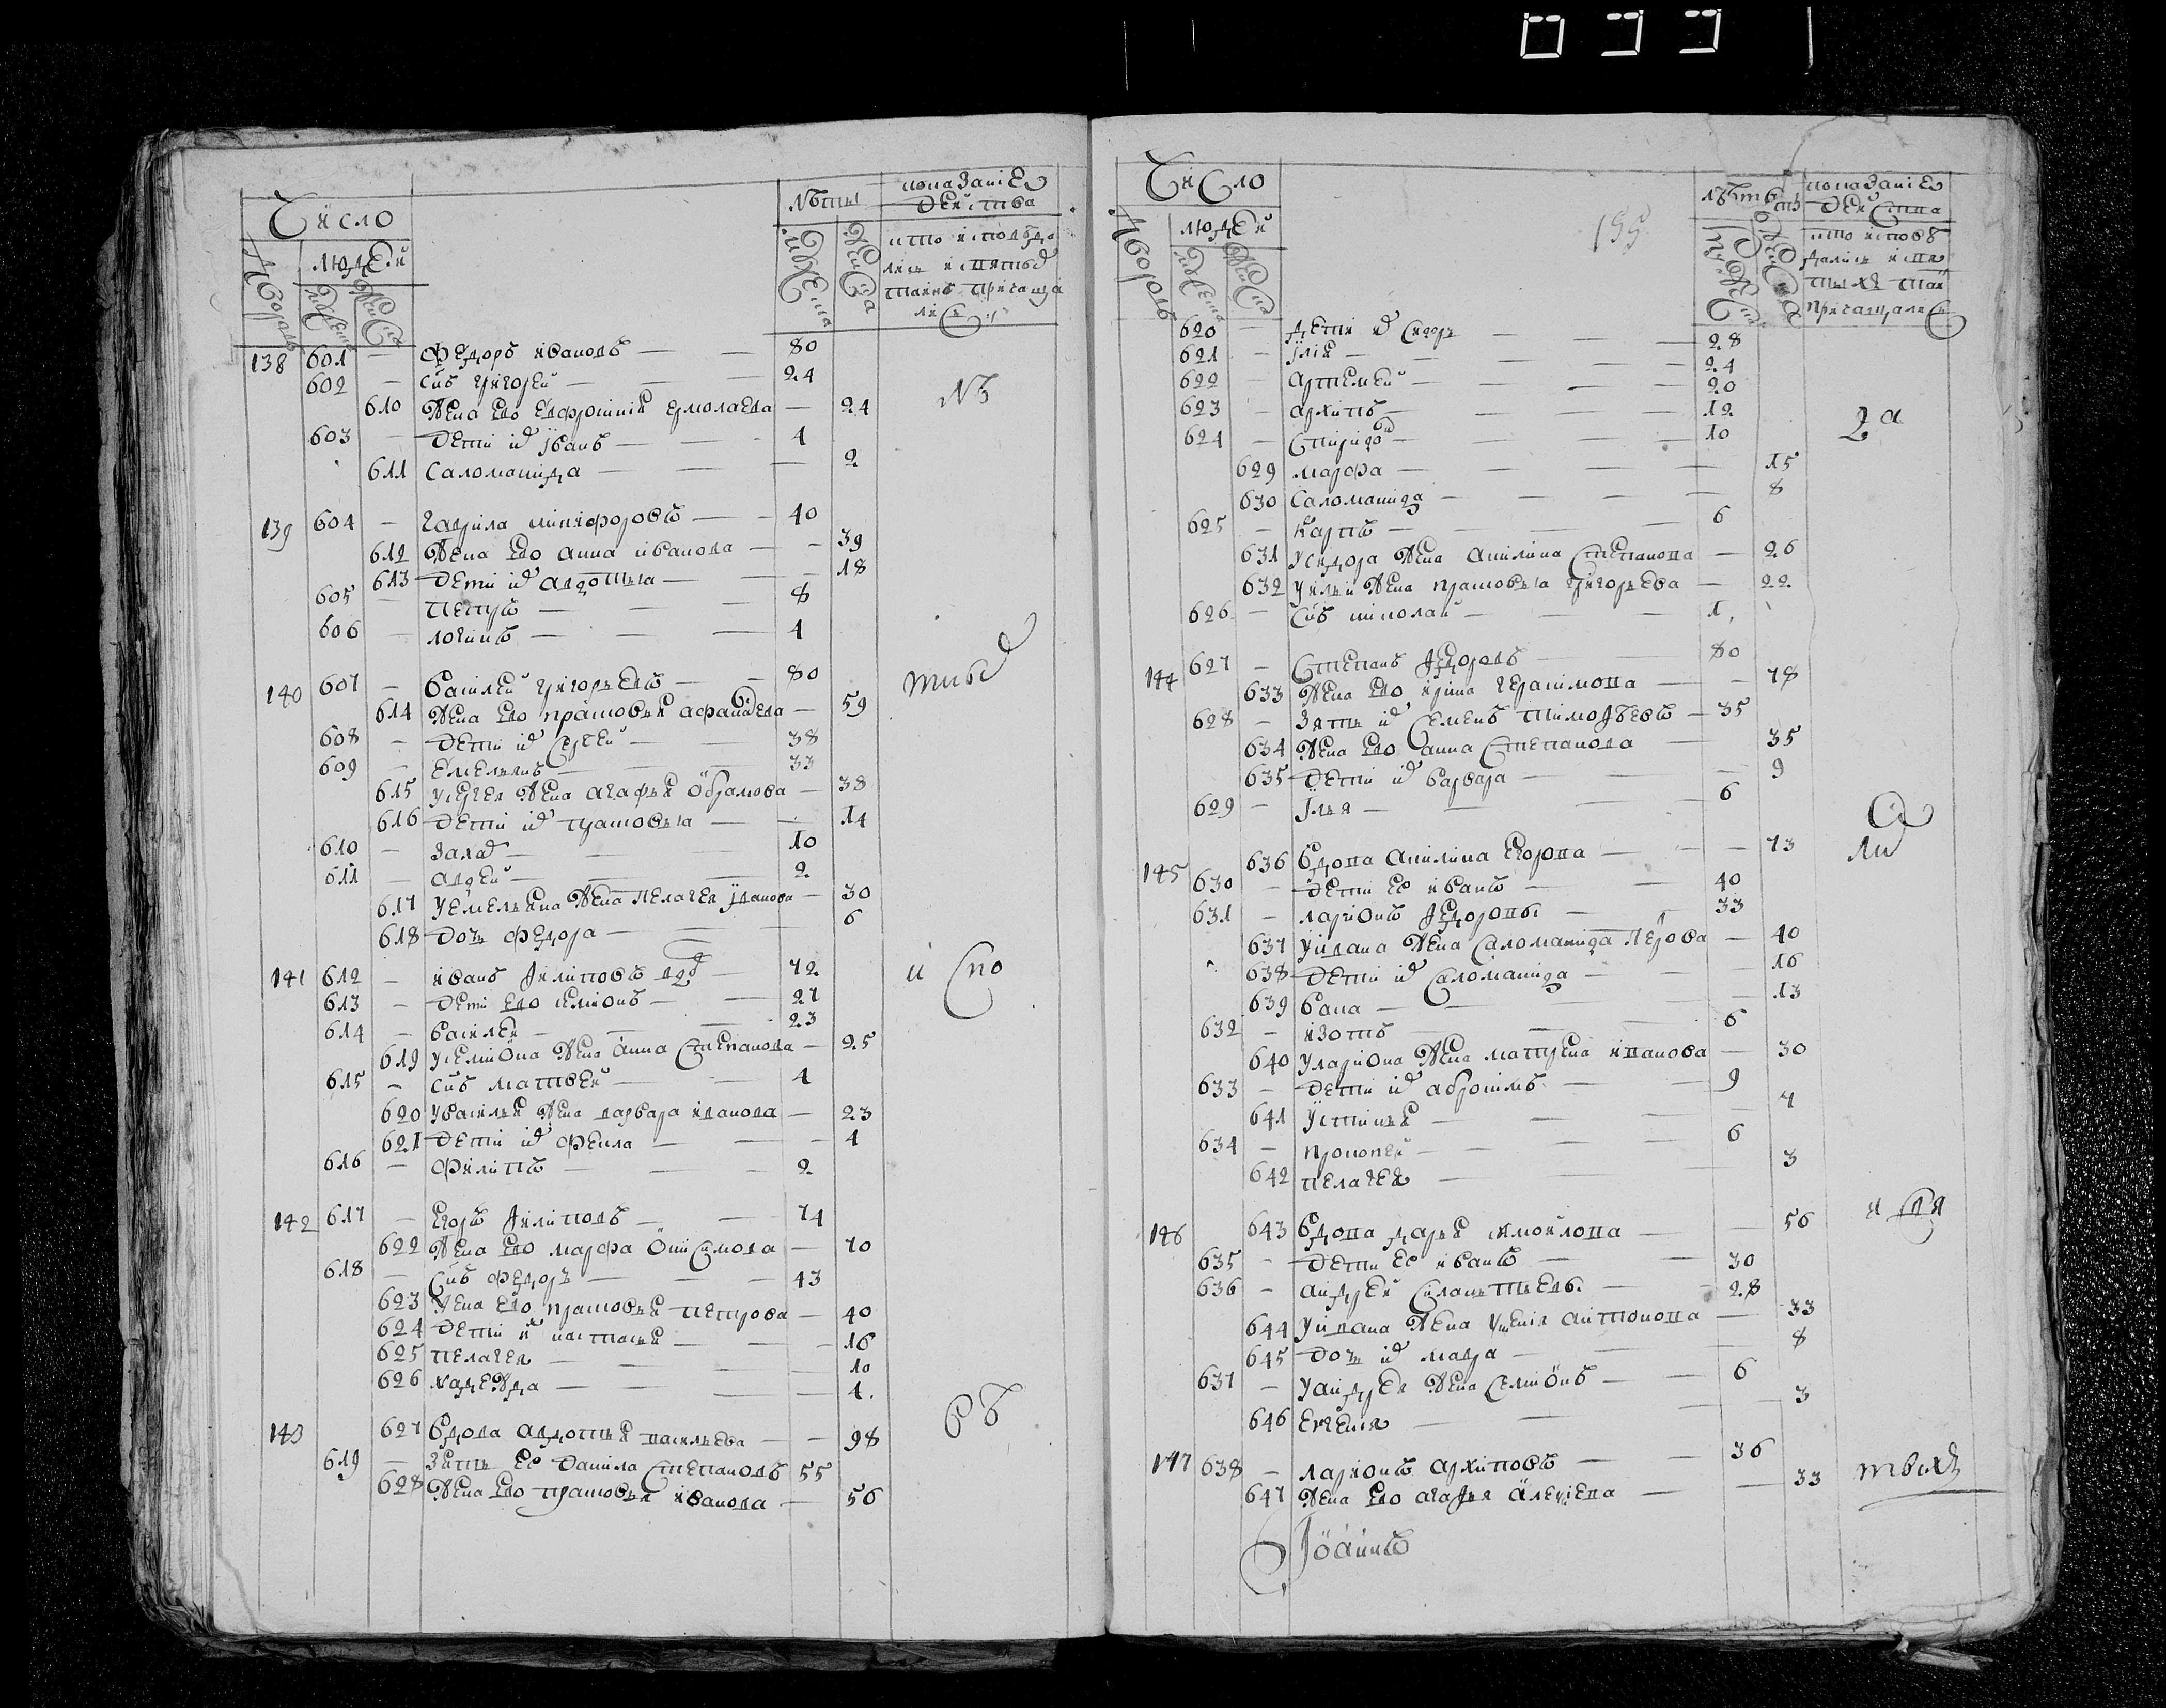 Число
Дворовъ
людей
мужеска
женска
лѣты
мужеска
женска
показаніе
действа
кто исповѣда
лись и святыхъ
таинъ причаща
лись
138 601 — Федоръ Ивановъ — 80
602 — снъ Григорей — 24
610 Жена его Евфросиния Ермолаева — 24
603 — Дети ихъ Иванъ — 4
611 Саломанида — 2
139 604 — Гаврила Никифоровъ — 40
612 Жена его Анна Иванова — 39
613 Дети ихъ Авдотья — 18
605 — Петръ — 8
606 — Логинъ — 4
140 607 — Василей Григорьевъ — 80
614 Жена его Прасковья — 59
608 — Дети ихъ Сергей — 38
609 — Емельянъ — 33
615 У Сергея Жена Агафья Абрамова — 38
616 Дети ихъ Прасковья — 14
610 — Захаръ — 10
611 — Авдей — 2
617 У Емельяна Жена Пелагея Иванова — 30
618 Дочь Федора — 6
141 612 — Иванъ Филиповъ вдовъ — 72
613 — Дети его Семионъ — 27
614 — Василей — 23
619 У Семиона Жена Анна Степанова — 25
615 — снъ Матвей — 4
620 У Василья Жена Варвара Иванова — 23
621 Дети ихъ Фекла — 4
616 — Филипъ — 2
142 617 — Егоръ Филиповъ — 74
622 Жена его Марфа Онисимова — 70
618 — Снъ Федоръ — 43
623 Жена его Прасковья Петрова — 40
624 Дети ихъ Настасья — 16
625 Пелагея — 10
626 Надежда — 4.
143 627 Вдова Авдотья Васильева — 98
619 — Зять ее Данила Степановъ 55
628 Жена его Прасковья Иванова — 56
Число
Дворовъ
людей
мужеска
женска
показаніе
действа
кто исповѣ
дались и свя
тыхъ таи
причащались
620 — Дети ихъ Сидоръ — 28
621 — Илія — 24
622 — Артемей — 20
623 — Архипъ — 12
624 — Спиридонъ — 10
629 Марфа — 15
630 Саломанида — 8
625 — Карпъ — 6
631 У Сидора Жена Акилина Степанова — 26
632 У Ильи Жена Прасковья Григорьева — 22
626 — Снъ Николай — 1
144 627 — Степанъ Федоровъ — 80
633 Жена его Ирина Герасимова — 78
628 — Зять ихъ Семенъ Тимофѣевъ — 35
634 Жена его Анна Степанова — 35
635 Дети ихъ Варвара — 9
629 — Илья — 6
145 636 Вдова Акилина Егорова — 73
630 — Дети ее Иванъ — 40
631 — Ларионъ Федоровы — 33
637 У Ивана Жена Саломанида Петрова — 40
638 Дети ихъ Саломанида — 16
639 Васа — 13
632 — Изотъ — 6
640 У Лариона Жена Матрена Иванова — 30
633 — Дети ихъ Абросимъ — 9
641 Устинья — 7
634 — Прокопей — 6
642 Пелагея — 3
146 643 Вдова Дарья Измойлова — 56
635 — Дети ее Иванъ — 30
636 — Андрей Силантьевы — 28
644 У Ивана Жена Антонова — 33
645 Дочь ихъ Мавра — 8
637 — У Андрея Жена Семионъ — 6
646 Евгения — 3
147 638 — Ларионъ Архиповъ — 36
647 Жена его Агафья Алексеева — 33
Іоаннъ